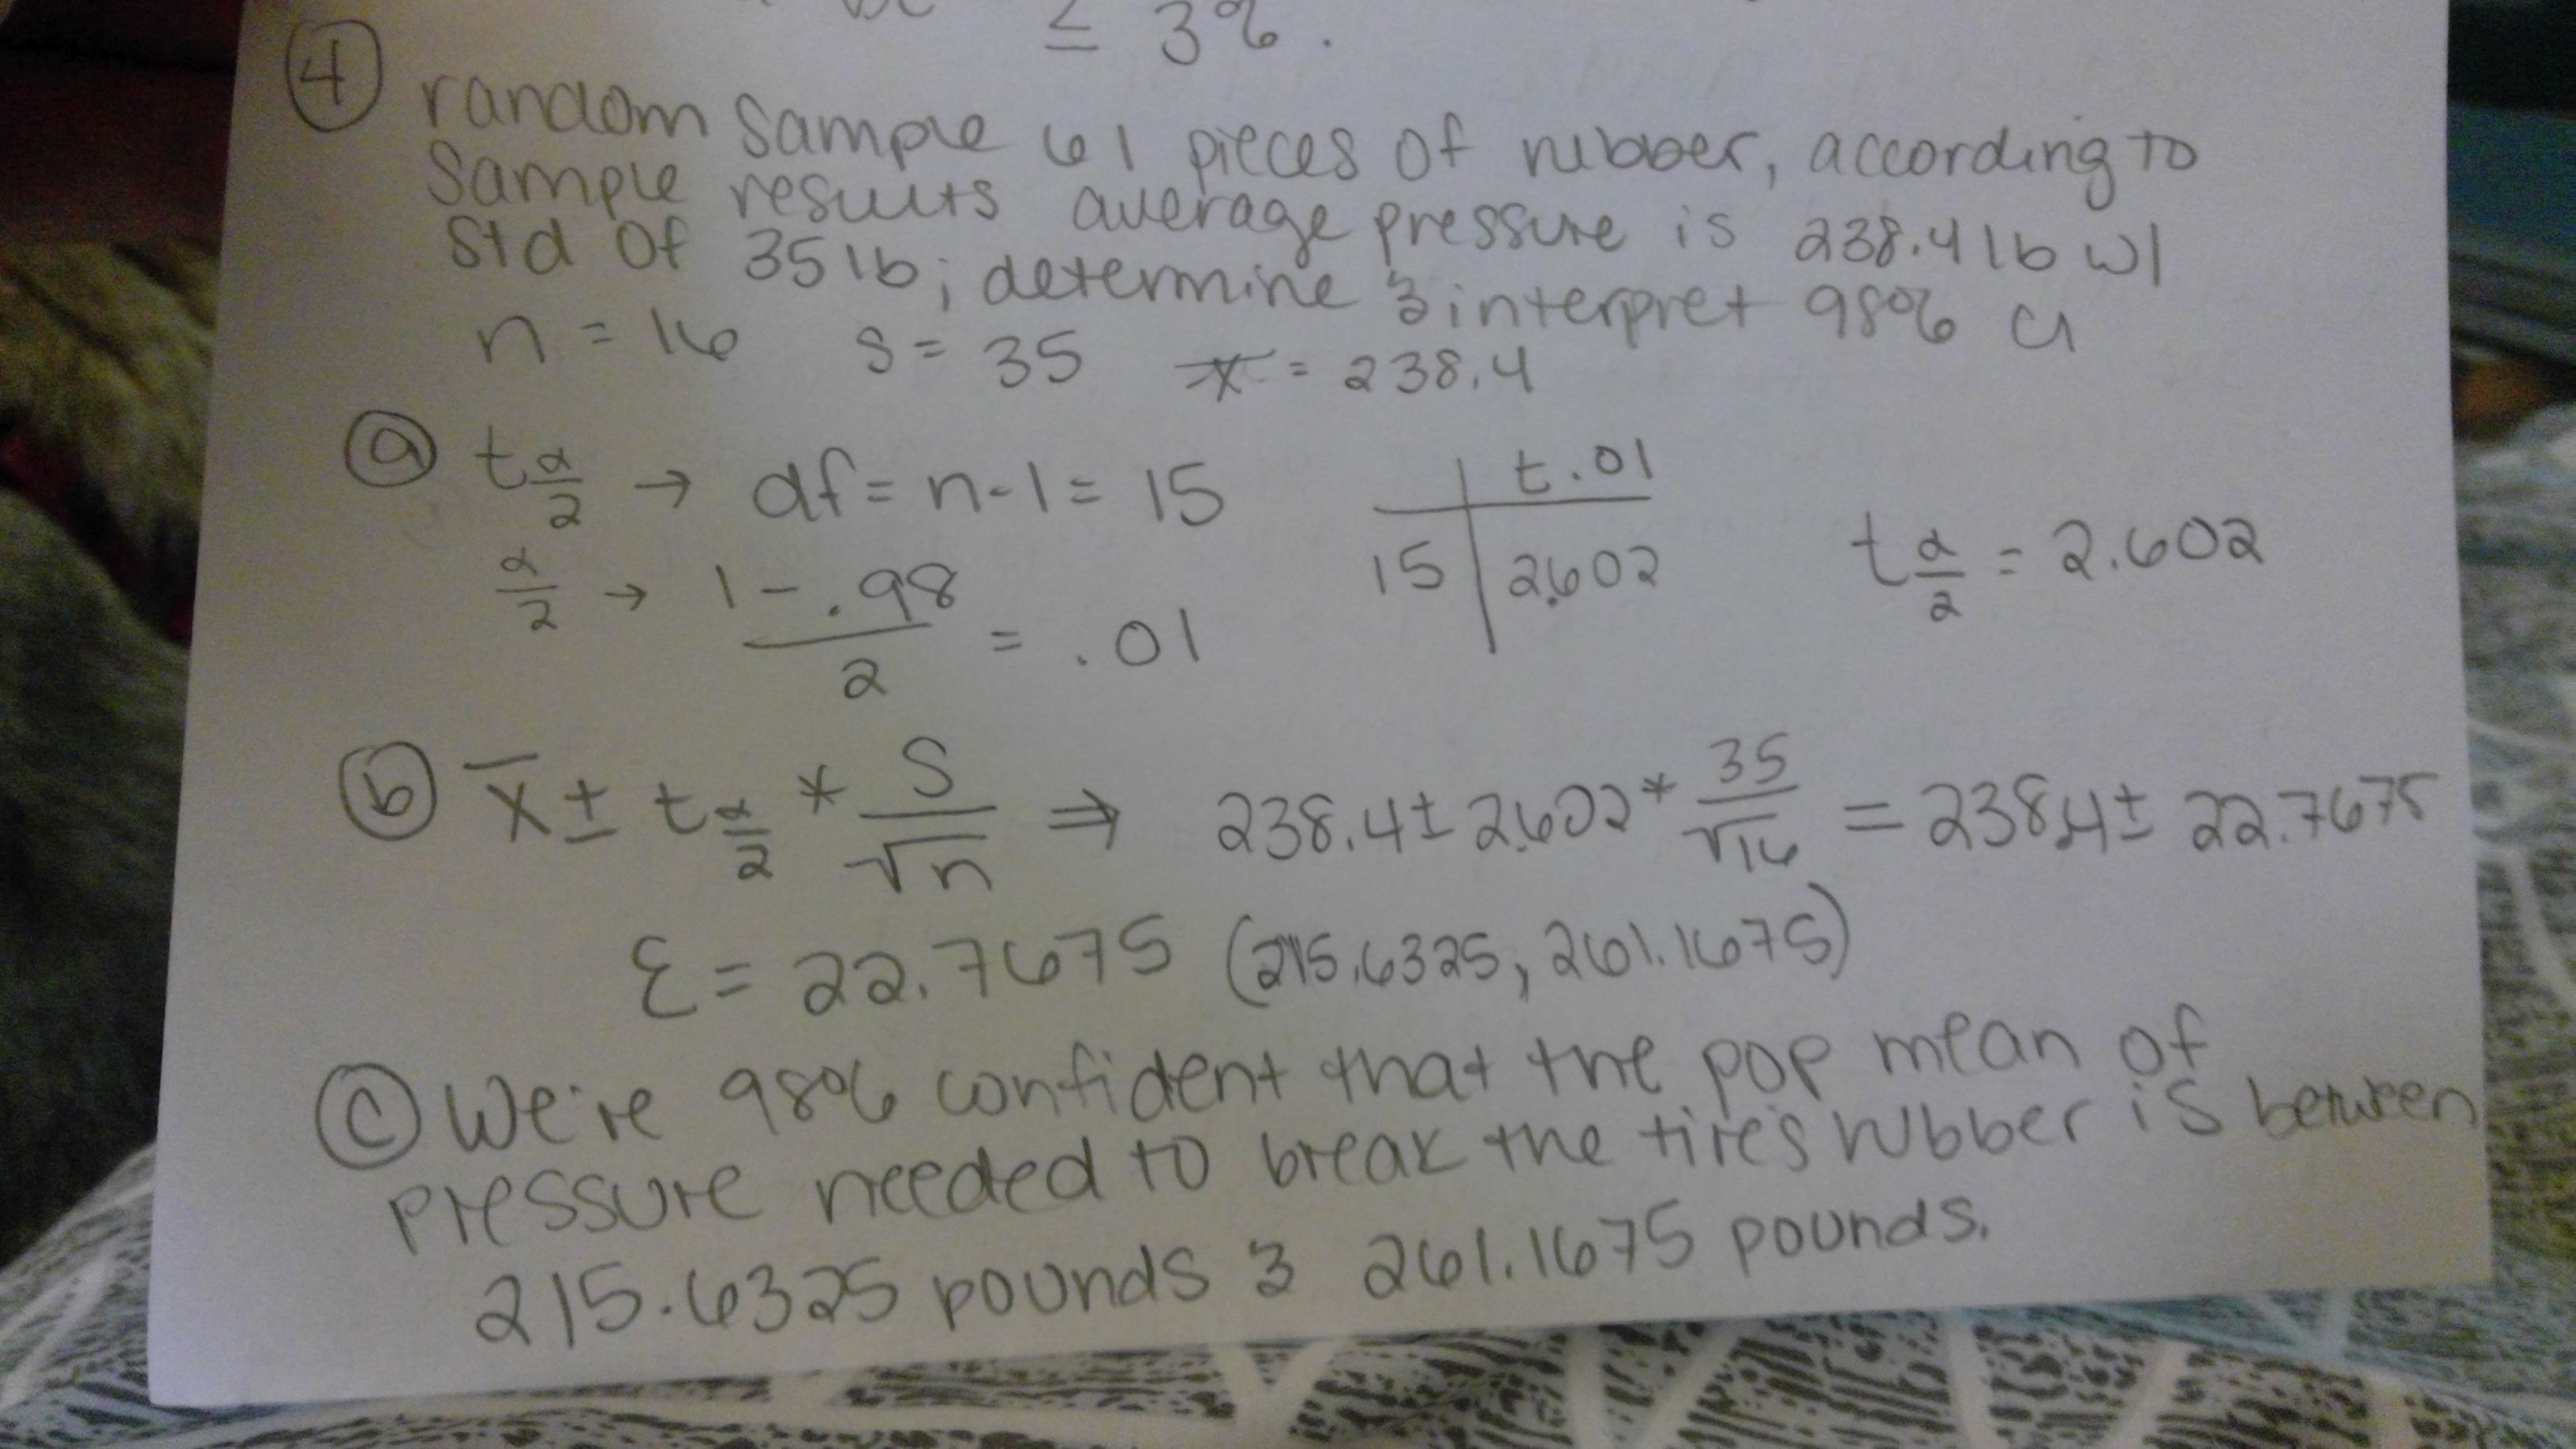 ≤ 3%.
④ random sample 61 pieces of rubber, according to
sample results average pressure is 238.4 lb w/
std of 35 lb; determine & interpret 98% CI
n = 16 s = 35 x̄ = 238.4
ⓐ t α/2 → df = n-1 = 15
t.01
15 | 2.602
t α/2 = 2.602
α/2 → (1 - .98)/2 = .01
ⓑ x̄ ± t α/2 * S/√n ⇒ 238.4 ± 2.602 * 35/√16 = 238.4 ± 22.7675
ℰ = 22.7675 (215.6325, 261.1675)
ⓒ We're 98% confident that the pop mean of
pressure needed to break the tires rubber is between
215.6325 pounds & 261.1675 pounds.